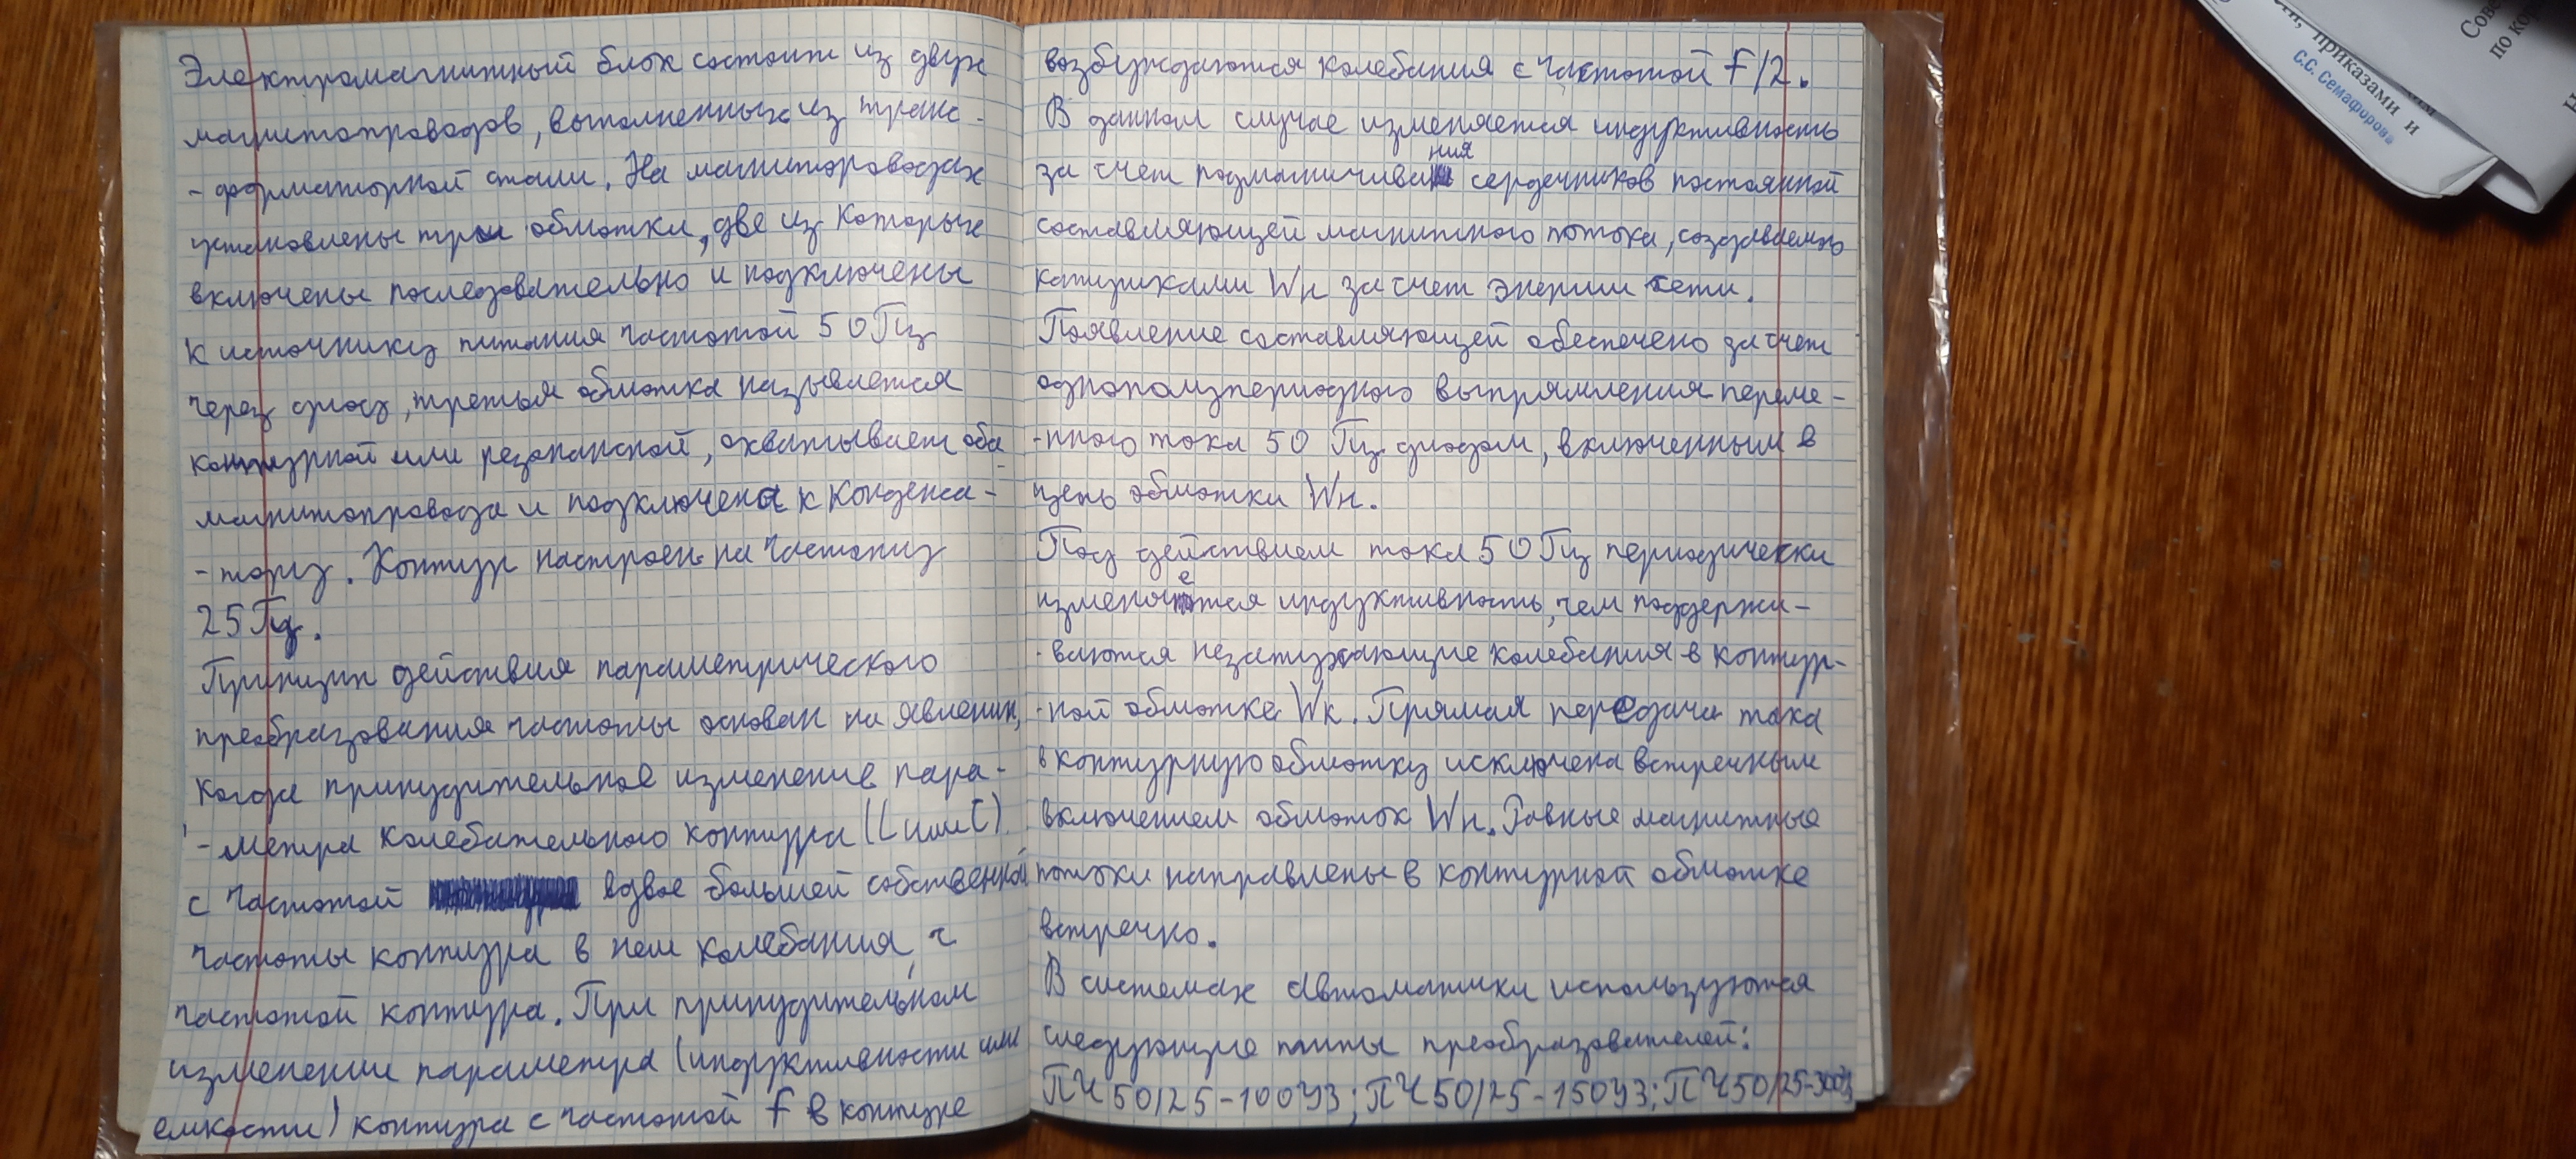 Электромагнитный блок состоит из двух
магнитопроводов, выполненных из транс-
-форматорной стали. На магнитопроводах
установлены три обмотки, две из которых
включены последовательно и подключены
к источнику питания частотой 50 Гц
через диод, третья обмотка называется
контурной или резонансной, охватывает оба
магнитопровода и подключена к конденса-
-тору. Контур настроен на частоту
25 Гц.
Принцип действия параметрического
преобразования частоты основан на явлении,
когда принудительное изменение пара-
-метра колебательного контура (L или C)
с частотой вдвое большей собственной
частоты контура в нем колебания, с
частотой контура. При принудительном
изменении параметра (индуктивности или
емкости) контура с частотой f в контуре
возбуждаются колебания с частотой f/2.
В данном случае изменяется индуктивность
за счет подмагничивания сердечников постоянной
составляющей магнитного потока, создаваемого
катушками Wн за счет энергии сети.
Появление составляющей обеспечено за счет
однополупериодного выпрямления переме-
-нного тока 50 Гц диодом, включенным в
цепь обмотки Wн.
Под действием тока 50 Гц периодически
изменяется индуктивность, чем поддержи-
-ваются незатухающие колебания в контур-
-ной обмотке Wк. Прямая передача тока
в контурную обмотку исключена встречным
включением обмоток Wн. Равные магнитные
потоки направлены в контурной обмотке
встречно.
В системах автоматики используются
следующие типы преобразователей:
ПЧ50/25-100У3; ПЧ50/25-150У3; ПЧ50/25-300У3
приказами и
С.С. Семафорова